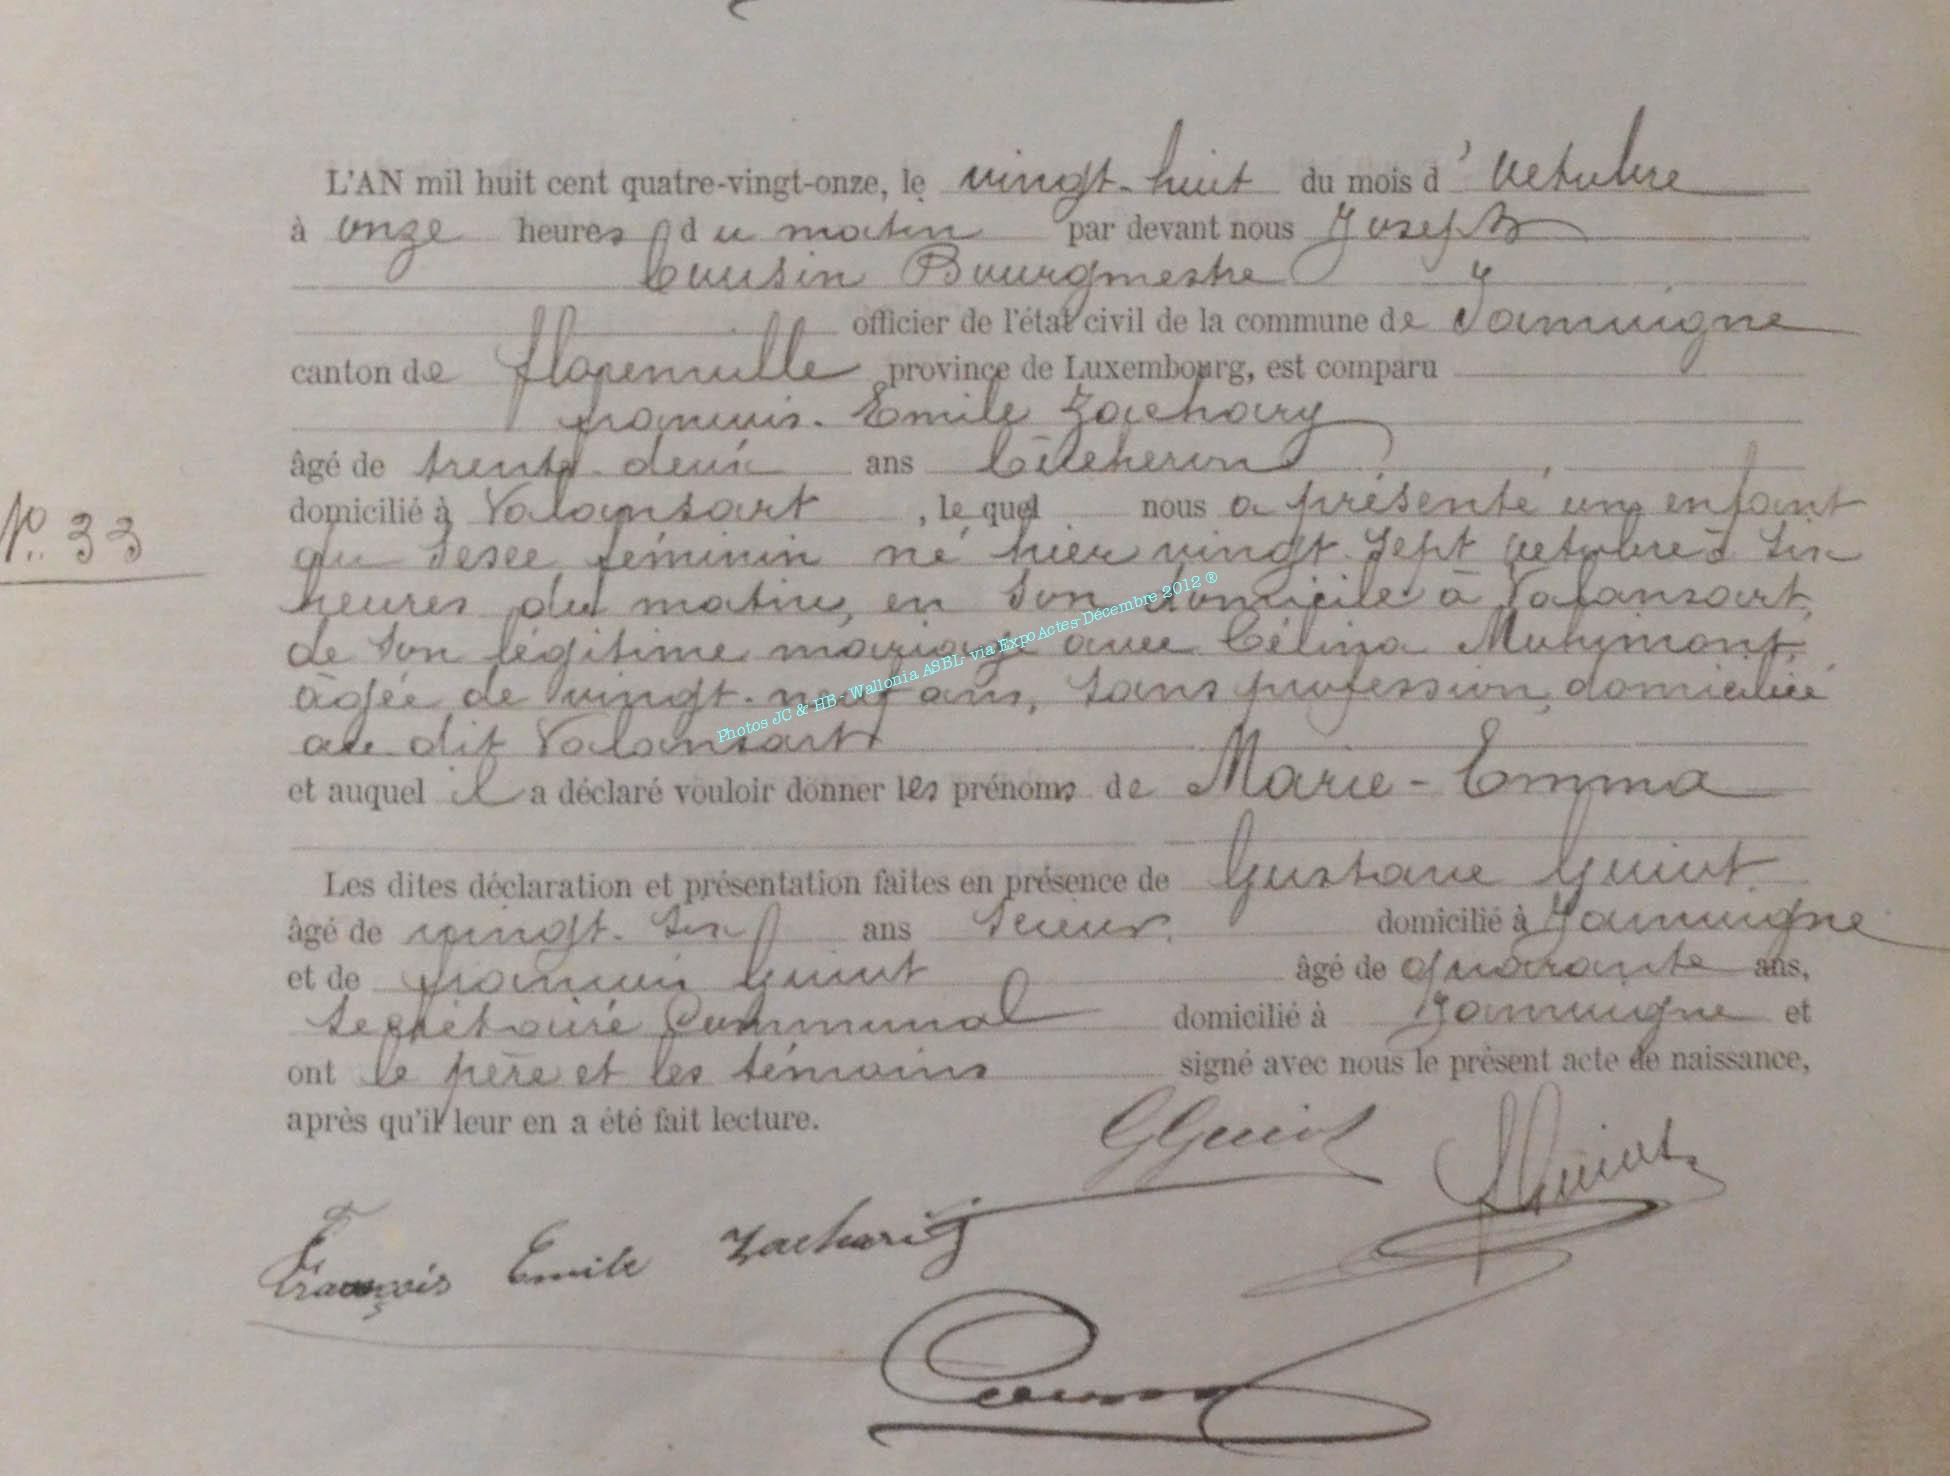 L'AN mil huit cent quatre-vingt-onze, le vingt-huit du mois d'Octobre
à onze heures du matin par devant nous Joseph
Cousin Bourgmestre
officier de l'état civil de la commune de Jamoigne
canton de florenville province de Luxembourg, est comparu
françois-Emile Zachary
âgé de trente deux ans Bûcheron
domicilié à Valansart, le quel nous a présenté un enfant
N° 33
du sexe féminin né hier vingt-sept octobre à six
heures du matin, en son domicile à Valansart,
de son légitime mariage avec Célina Muhimont,
âgée de vingt-neuf ans, sans profession, domiciliée
au dit Valansart
et auquel il a déclaré vouloir donner les prénoms de Marie-Emma
Les dites déclaration et présentation faites en présence de Gustave Guiot
âgé de vingt-six ans scieur domicilié à Jamoigne
et de françois Guiot âgé de quarante ans,
secrétaire Communal domicilié à Jamoigne et
ont le père et les témoins signé avec nous le présent acte de naissance,
après qu'il leur en a été fait lecture.
GGuiot
fGuiot
François Emile Zachari
Cousin
Photos JC & HB - Wallonia ASBL- via ExpoActes-Décembre 2012 ®